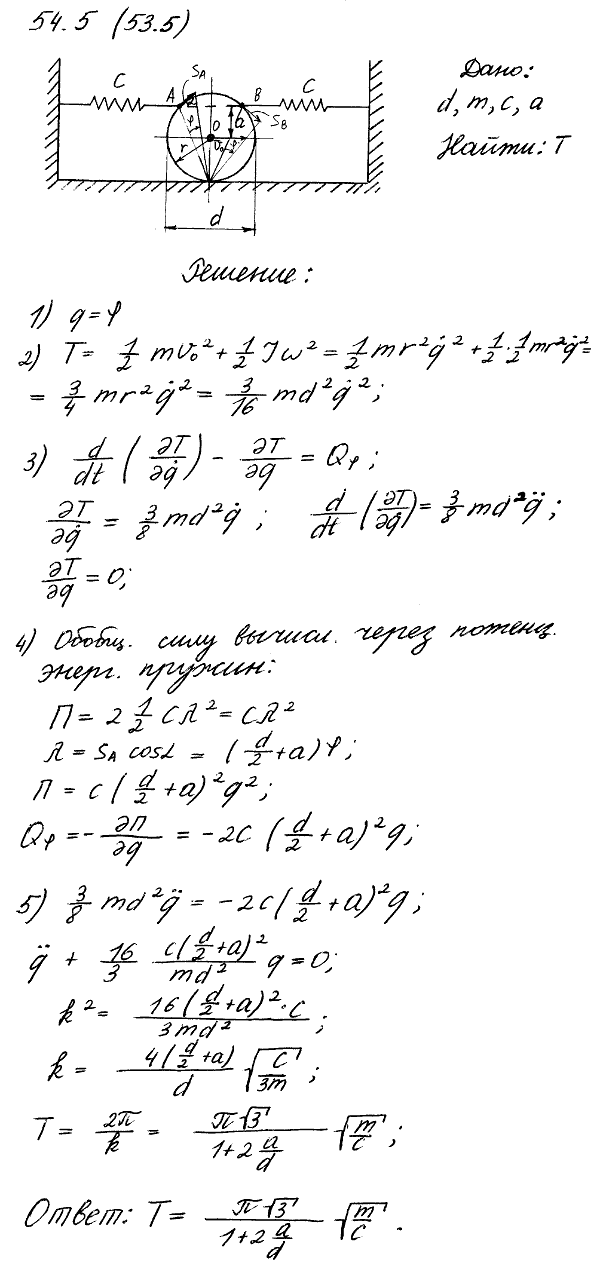 54.5 (53.5)
Дано:
d, m, c, a
Найти: T
C
S_A
A
B
C
φ
a
S_B
O
r
v₀
φ
d
Решение:
1) q=φ
2) T = 1/2 mv₀² + 1/2 Jω² = 1/2 mr²q̇² + 1/2·1/2 mr²q̇² =
= 3/4 mr²q̇² = 3/16 md²q̇²;
3) d/dt (∂T/∂q̇) − ∂T/∂q = Qφ;
∂T/∂q̇ = 3/8 md²q̇; d/dt (∂T/∂q̇) = 3/8 md²q̈;
∂T/∂q = 0;
4) Обобщ. силу вычисл. через потенц.
энерг. пружин:
П = 2 1/2 cλ² = cλ²
λ = S_A cosα = (d/2 + a)φ;
П = c(d/2 + a)²q²;
Qφ = −∂П/∂q = −2c (d/2 + a)²q;
5) 3/8 md²q̈ = −2c(d/2 + a)²q;
q̈ + 16/3 c(d/2 + a)²/md² q = 0;
k² = 16(d/2 + a)²·c/3md²;
k = 4(d/2 + a)/d √(c/3m);
T = 2π/k = π√3/(1+2 a/d) √(m/c);
Ответ: T = π√3/(1+2 a/d) √(m/c).